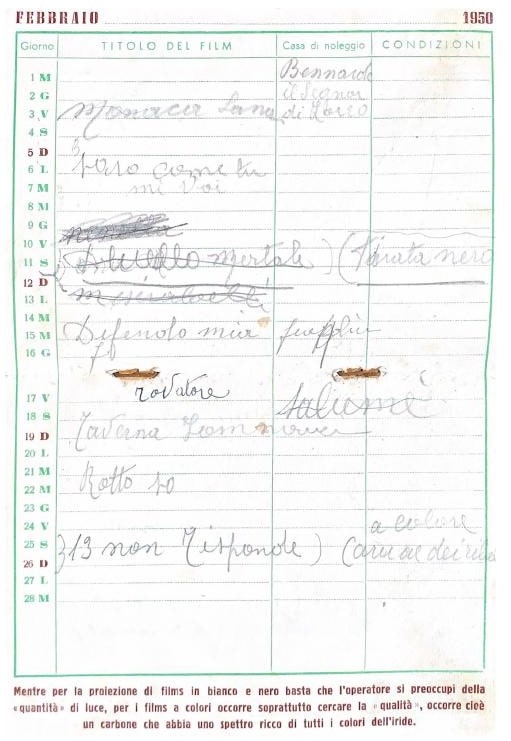 FEBBRAIO 1950
Giorno TITOLO DEL FILM Casa di noleggio CONDIZIONI
1 M Bennardo
2 G il Segnor
3 V Monaca Santa di Lorso
4 S
5 D
6 L come tu
7 M mi voi
8 M
9 G
10 V
11 S Duello mortale ) ( Pirata nero
12 D
13 L
14 M
15 M Difendo mia
16 G
rovatore
17 V salumè
18 S
19 D Taverna
20 L
21 M
22 M Rotto
23 G
24 V a colore
25 S } 13 non Risponde )
26 D
27 L
28 M
Mentre per la proiezione di films in bianco e nero basta che l'operatore si preoccupi della
« quantità » di luce, per i films a colori occorre soprattutto cercare la « qualità », occorre cioè
un carbone che abbia uno spettro ricco di tutti i colori dell'iride.